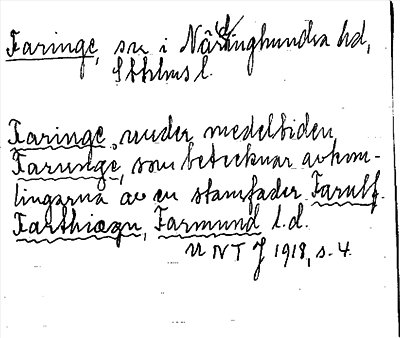 Faringe, sn i Närdinghundra hd,
Sthlms l.
Faringe, under medeltiden
Farunge, som betecknar avkom-
lingarna av en stamfader Farulf,
Farthiægn, Farmund l.d.
UNT J 1918, s. 4.